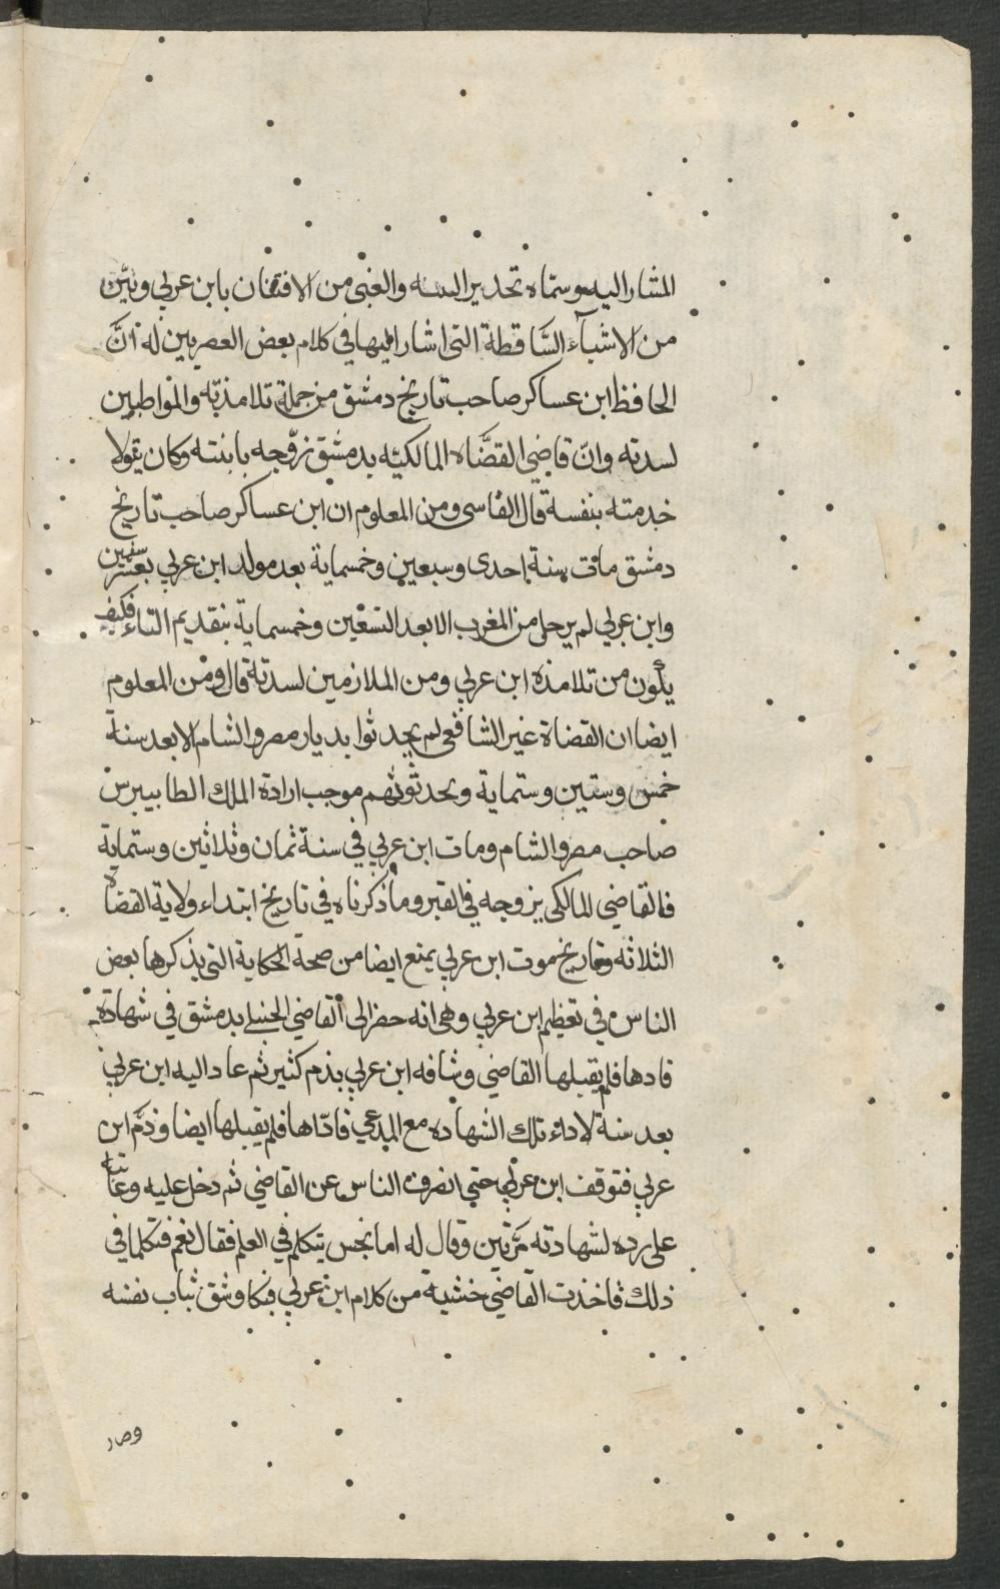 المشار اليه وسماه تحذير السنه والغبى من الافتتان بابن عربي وبيّن
من الاشيآء السَّاقطة التى اشار اليها في كلام بعض العصريين له انَّ
الحافظ ابن عساكر صاحب تاريخ دمشق من جملة تلامذته والمواطبين
لسدته وانّ قاضي القضَّاه المالكيّه بدمشق زوّجه بابنته وكان يتولا
خدمته بنفسة قال الفاسى ومن المعلوم ان ابن عساكر صاحب تاريخ
دمشق مات سنة إحدى وسبعين وخمسماية بعد مولد ابن عربي بعشر سنين
وابن عربي لم يرحل من المغرب الا بعد التسعين وخمسماية بتقديم التاء فكيف
يكون من تلامذه ابن عربي ومن الملازمين لسدتة قال ومن المعلوم
ايضا ان القضاة غير الشافعى لم يحدثوا بديار مصر والشام الا بعد سنة
خمس وستين وستماية وبحدثونهم موجب ارادة الملك الطا بيبرس
صاحب مصر والشام ومات ابن عربي في سنة ثمان وثلاثين وستماية
فالقاضي المالكى يزوجه في القبر وما ذكرناه في تاريخ ابتداء ولاية القضاه
الثلاثه وتاريخ موت ابن عربي يمنع ايضا من صحة الحكاية التى يذكرها بعض
الناس في تعظيم ابن عربي وهى انه حضر الى القاضي الحنبلي بدمشق في شهادة
فادها فلم يقبلها القاضي وشافه ابن عربي بذم كثير ثم عاد اليه ابن عربي
بعد سنة لاداء تلك الشهاده مع المدعي فادّاها فلم يقبلها ايضا وذمّ ابن
عربي فتوقف ابن عربي حتي انصرف الناس عن القاضي ثم دخل عليه وعاتبه
على رده لشهادته مرّتين وقال له اما تحسن تتكلم في العلم فقال نعم فتكلما في
ذلك فاخذت القاضي خشية من كلام ابن عربي فبكا وشق ثياب نفسه
وصار